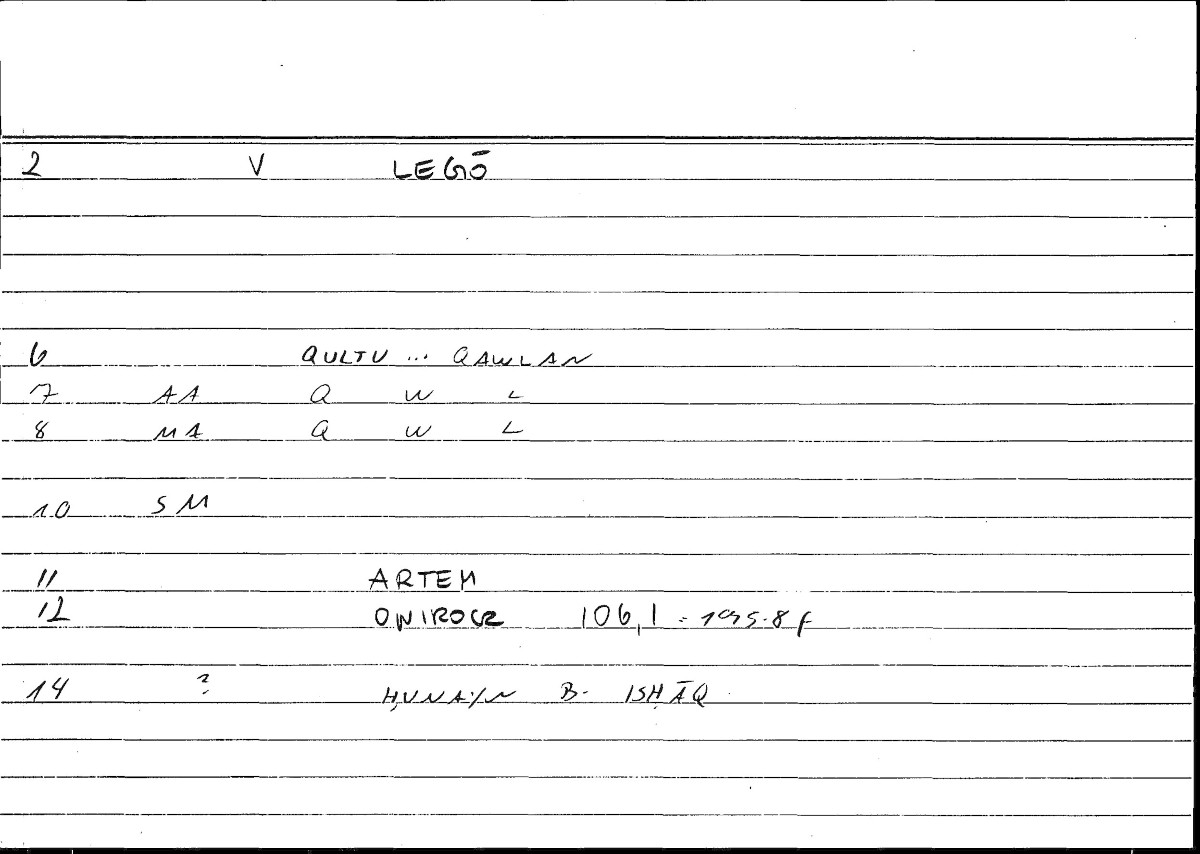 2 V LEGŌ
6 QULTU ... QAWLAN
7 AA Q W L
8 MA Q W L
10 SM
11 ARTEM
12 ONIROCR 106,1 = 195.8 f
14 ? ḤUNAYN B. ISḤĀQ